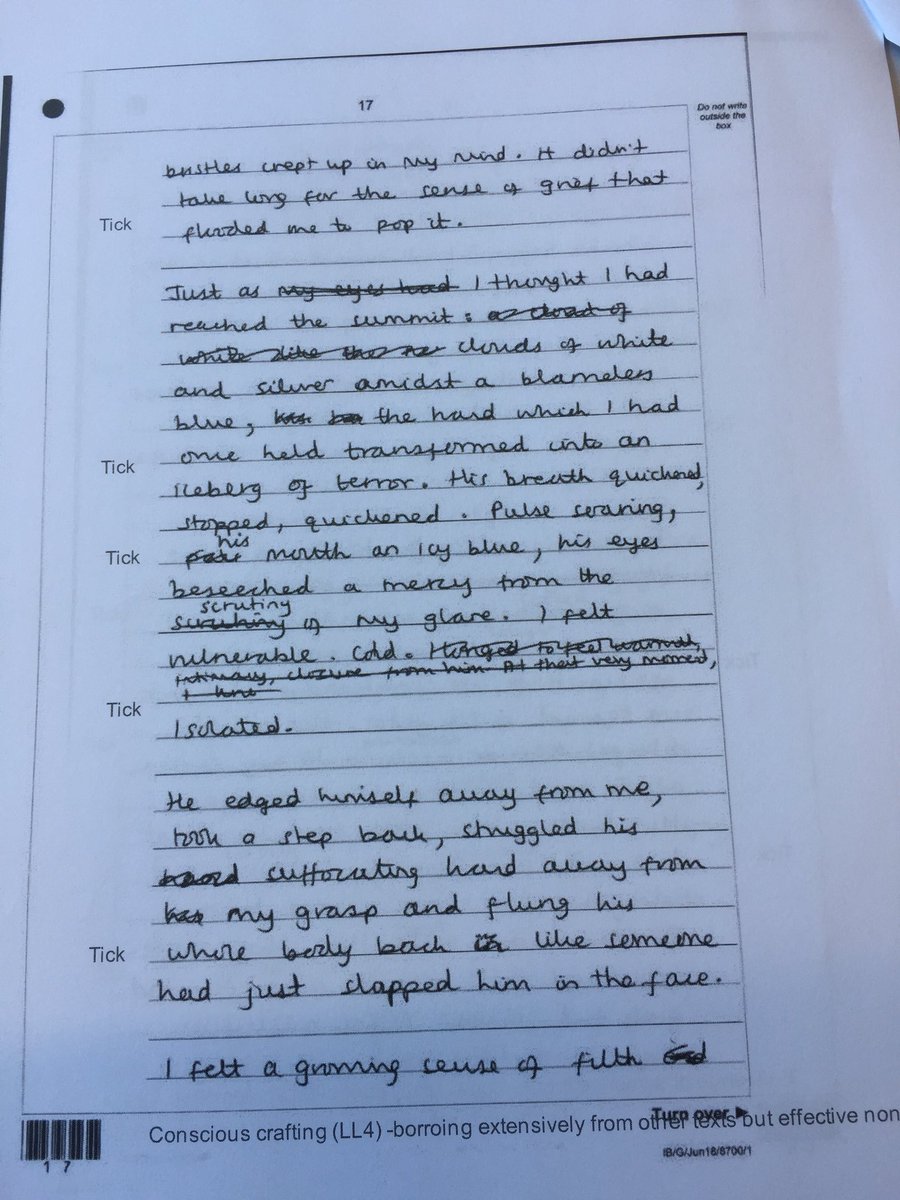 17
Do not write
outside the
box
bristles crept up in my mind. It didn't
take long for the sense of grief that
Tick
flooded me to pop it.
Just as my eyes had I thought I had
reached the summit: a cloud of
white like the clouds of white
and silver amidst a blameless
blue, the hand which I had
Tick
once held transformed into an
iceberg of terror. His breath quickened,
stopped, quickened. Pulse searing,
his
Tick
mouth an icy blue, his eyes
beseeched a mercy from the
scrutiny
scrutiny of my glare. I felt
vulnerable. Cold. I longed to feel warmth,
intimacy, closure from him. At that very moment,
I knew
Tick
Isolated.
He edged himself away from me,
took a step back, struggled his
hand suffocating hand away from
his my grasp and flung his
Tick
whole body back like someone
had just slapped him in the face.
I felt a growing sense of filth
Turn over ►
Conscious crafting (LL4) -borroing extensively from other texts but effective non
IB/G/Jun18/8700/1
1 7